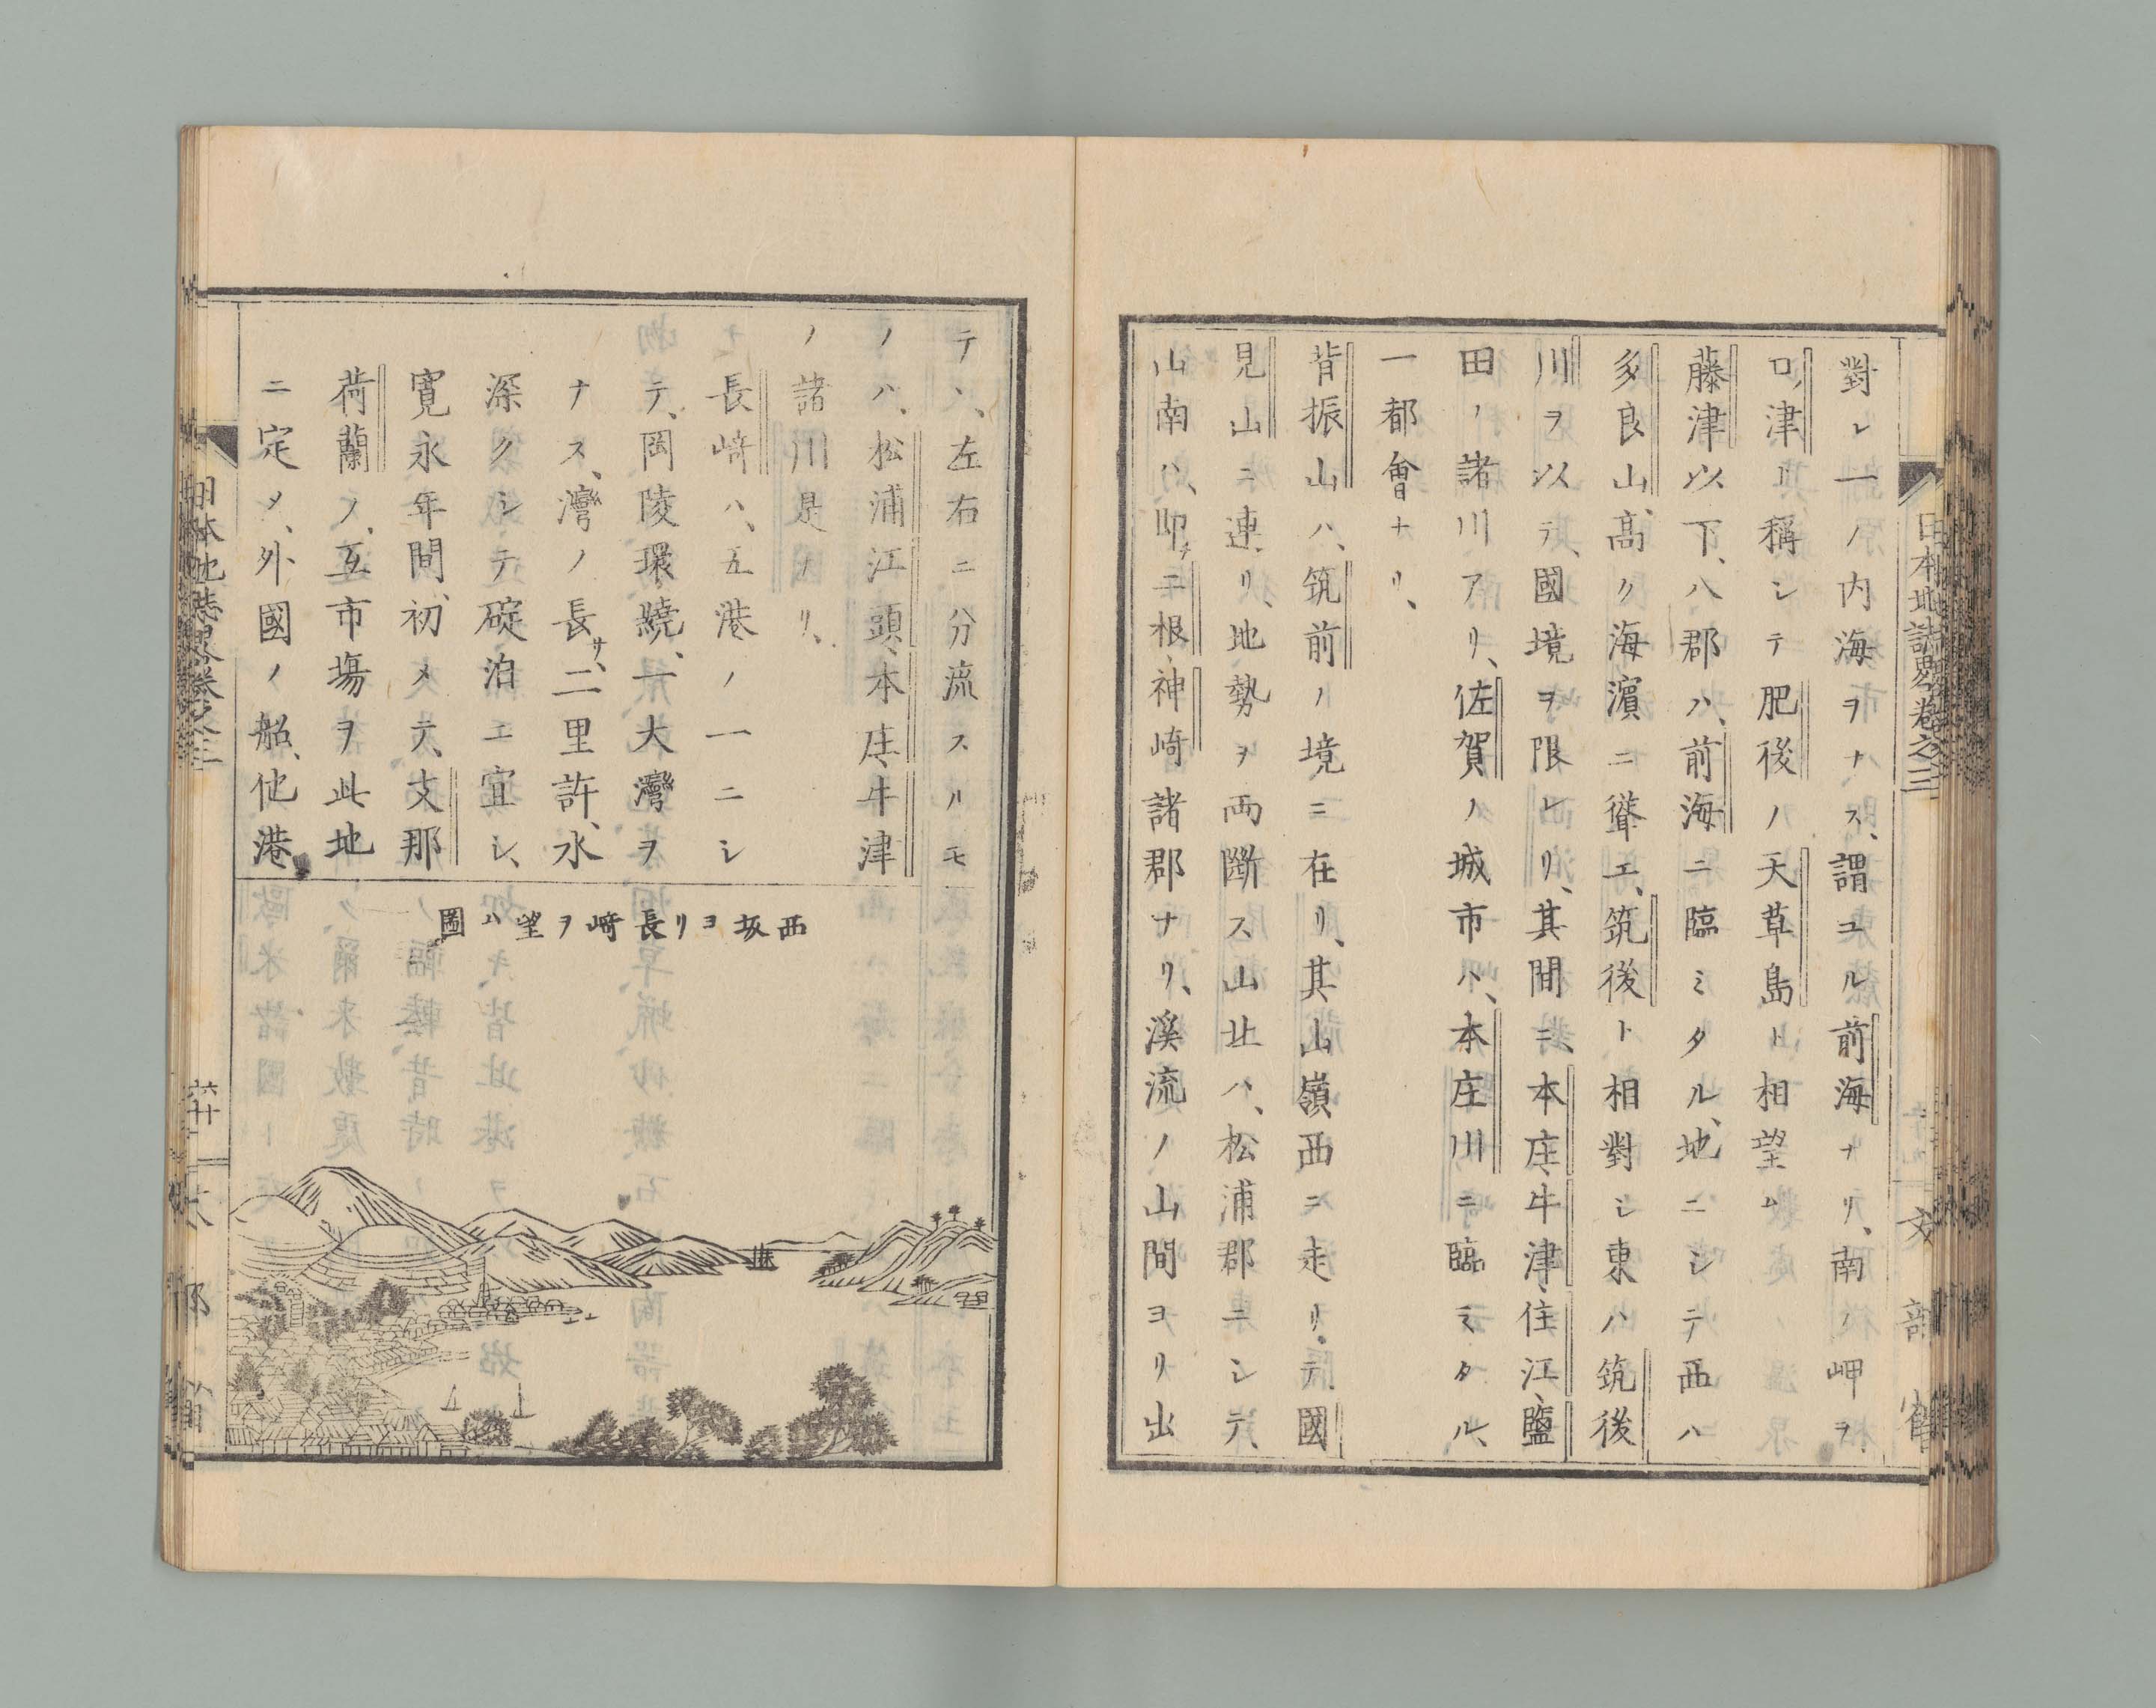 日本地誌畧卷之三
文部省
對シ一ノ内海ヲナス、謂ユル前海ナリ、南ノ岬ヲ
口ノ津ト稱シテ肥後ノ天草島ト相望ム
藤津以下、八郡ハ、前海ニ臨ミタル、地ニシテ西ハ
多良山、高ク海濵ニ聳エ、筑後ト相對シ東ハ筑後
川ヲ以テ、國境ヲ限レリ、其間ニ、本庄、牛津、住江、鹽
田ノ諸川アリ、佐賀ノ城市ハ、本庄川ニ臨ミタル、
一都會ナリ、
背振山ハ、筑前ノ境ニ在リ、其山嶺西ニ走リテ國
見山ニ連リ、地勢ヲ両斷ス山北ハ、松浦郡ニシテ、
山南ハ、即チ三根、神崎諸郡ナリ、溪流ノ山間ヨリ出
テヽ、左右ニ分流スルモ
ノハ、松浦江頭、本庄、牛津
ノ諸川是ナリ、
長崎ハ、五港ノ一ニシ
テ、岡陵環繞、一大灣ヲ
ナス、灣ノ長サ、二里許、水
深クシテ碇泊エ宜シ、
寛永年間、初メテ、支那
荷蘭ノ、互市塲ヲ此地
ニ定メ、外國ノ船、他港
西坂ヨリ長崎ヲ望ム圖
日本地誌畧卷之三
六十
文部省